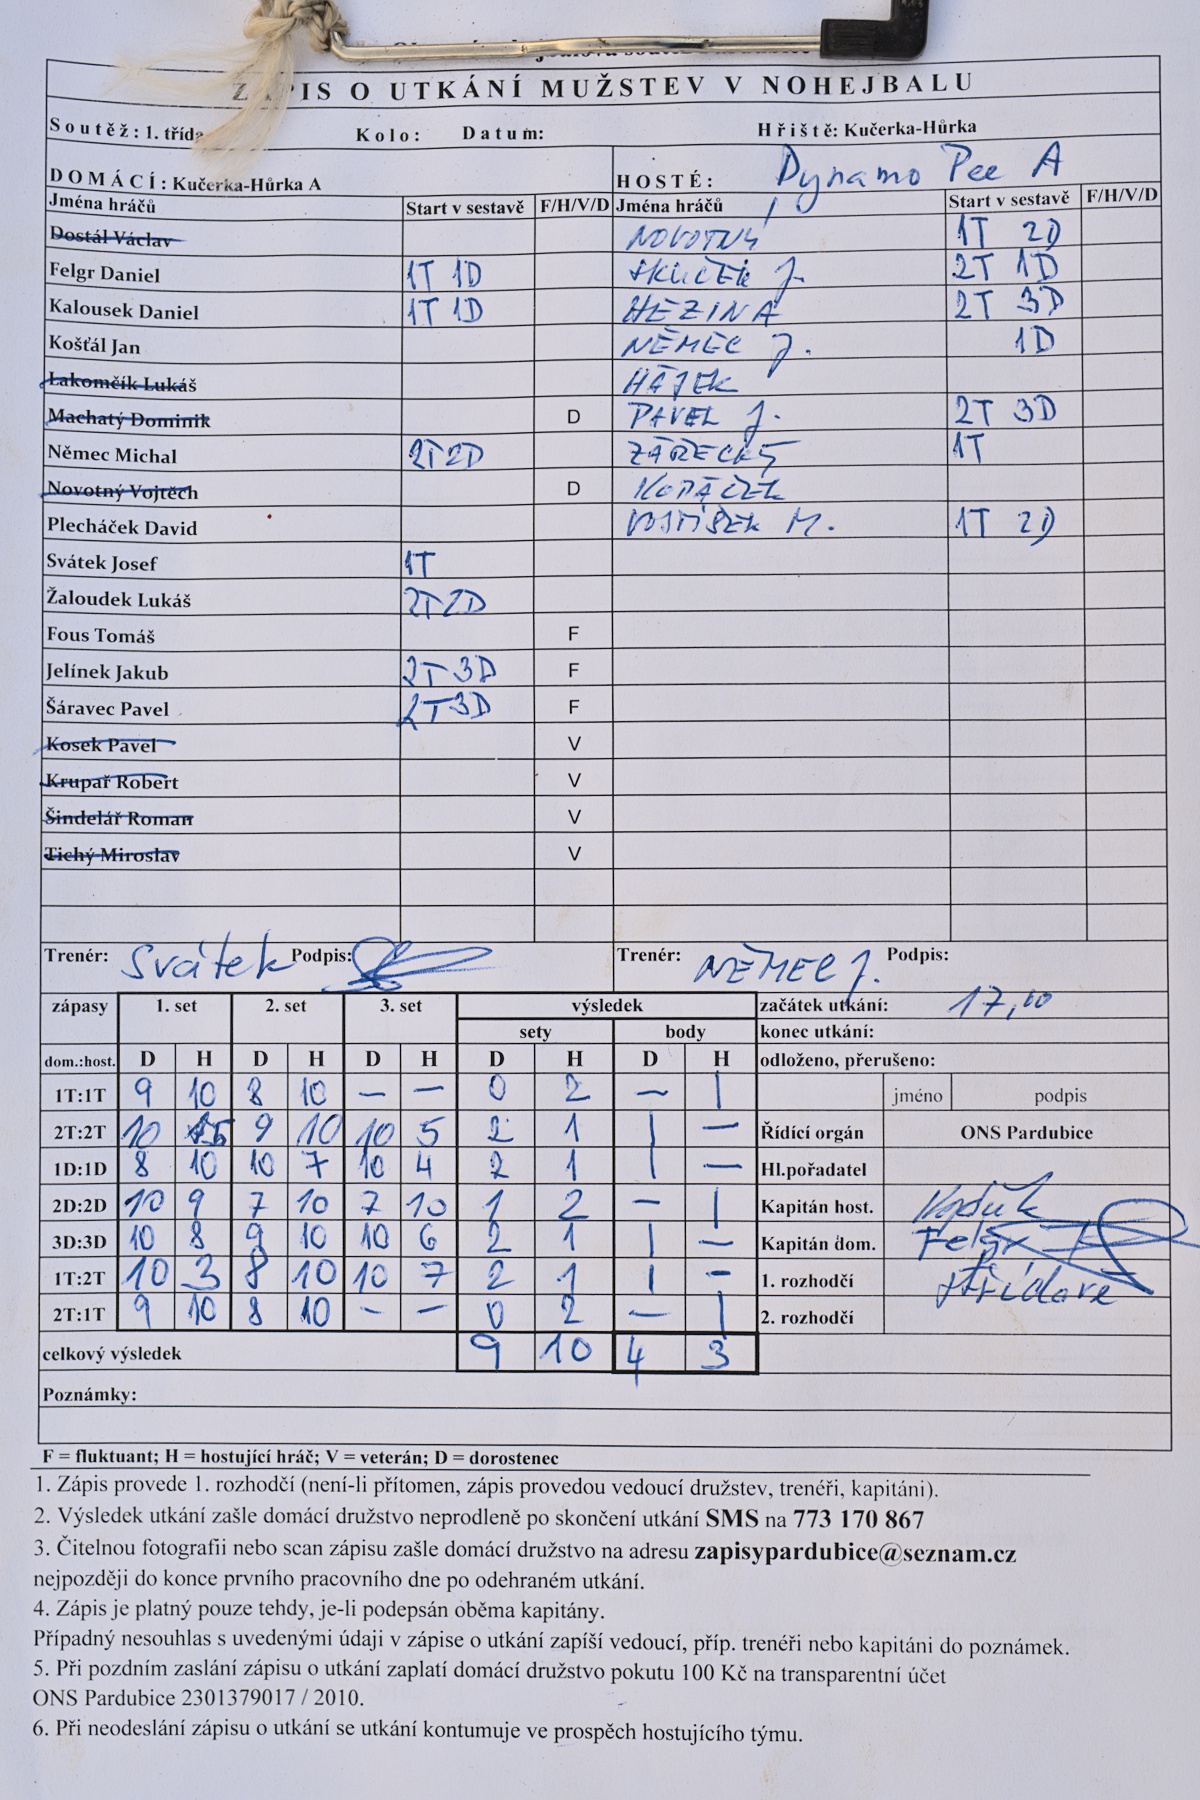 ZÁPIS O UTKÁNÍ MUŽSTEV V NOHEJBALU
Soutěž: 1. třída Kolo: Datum: Hřiště: Kučerka-Hůrka
DOMÁCÍ: Kučerka-Hůrka A HOSTÉ: Dynamo Pce A
Jména hráčů Start v sestavě F/H/V/D Jména hráčů Start v sestavě F/H/V/D
Dostál Václav NOVOTNÝ 1T 2D
Felgr Daniel 1T 1D J. 2T 1D
Kalousek Daniel 1T 1D HEZINA 2T 3D
Košťál Jan NĚMEC J. 1D
Lakomčík Lukáš HÁJEK
Machatý Dominik D PAVEL J. 2T 3D
Němec Michal 2T 2D ZÁŘECKÝ 1T
Novotný Vojtěch D KOPÁČEK
Plecháček David M. 1T 2D
Svátek Josef 1T
Žaloudek Lukáš 2T 2D
Fous Tomáš F
Jelínek Jakub 2T 3D F
Šáravec Pavel 2T 3D F
Kosek Pavel V
Krupař Robert V
Šindelář Roman V
Tichý Miroslav V
Trenér: Svátek Podpis: Trenér: NĚMEC J. Podpis:
zápasy 1. set 2. set 3. set výsledek začátek utkání: 17,00
sety body konec utkání:
dom.:host. D H D H D H D H D H odloženo, přerušeno:
1T:1T 9 10 8 10 – – 0 2 – 1 jméno podpis
2T:2T 10 9 10 10 5 2 1 1 – Řídící orgán ONS Pardubice
1D:1D 8 10 10 7 10 4 2 1 1 – Hl.pořadatel
2D:2D 10 9 7 10 7 10 1 2 – 1 Kapitán host.
3D:3D 10 8 9 10 10 6 2 1 1 – Kapitán dom. Felgr
1T:2T 10 3 8 10 10 7 2 1 1 – 1. rozhodčí střídavě
2T:1T 9 10 8 10 – – 0 2 – 1 2. rozhodčí
celkový výsledek 9 10 4 3
Poznámky:
F = fluktuant; H = hostující hráč; V = veterán; D = dorostenec
1. Zápis provede 1. rozhodčí (není-li přítomen, zápis provedou vedoucí družstev, trenéři, kapitáni).
2. Výsledek utkání zašle domácí družstvo neprodleně po skončení utkání SMS na 773 170 867
3. Čitelnou fotografii nebo scan zápisu zašle domácí družstvo na adresu zapisypardubice@seznam.cz
nejpozději do konce prvního pracovního dne po odehraném utkání.
4. Zápis je platný pouze tehdy, je-li podepsán oběma kapitány.
Případný nesouhlas s uvedenými údaji v zápise o utkání zapíší vedoucí, příp. trenéři nebo kapitáni do poznámek.
5. Při pozdním zaslání zápisu o utkání zaplatí domácí družstvo pokutu 100 Kč na transparentní účet
ONS Pardubice 2301379017 / 2010.
6. Při neodeslání zápisu o utkání se utkání kontumuje ve prospěch hostujícího týmu.